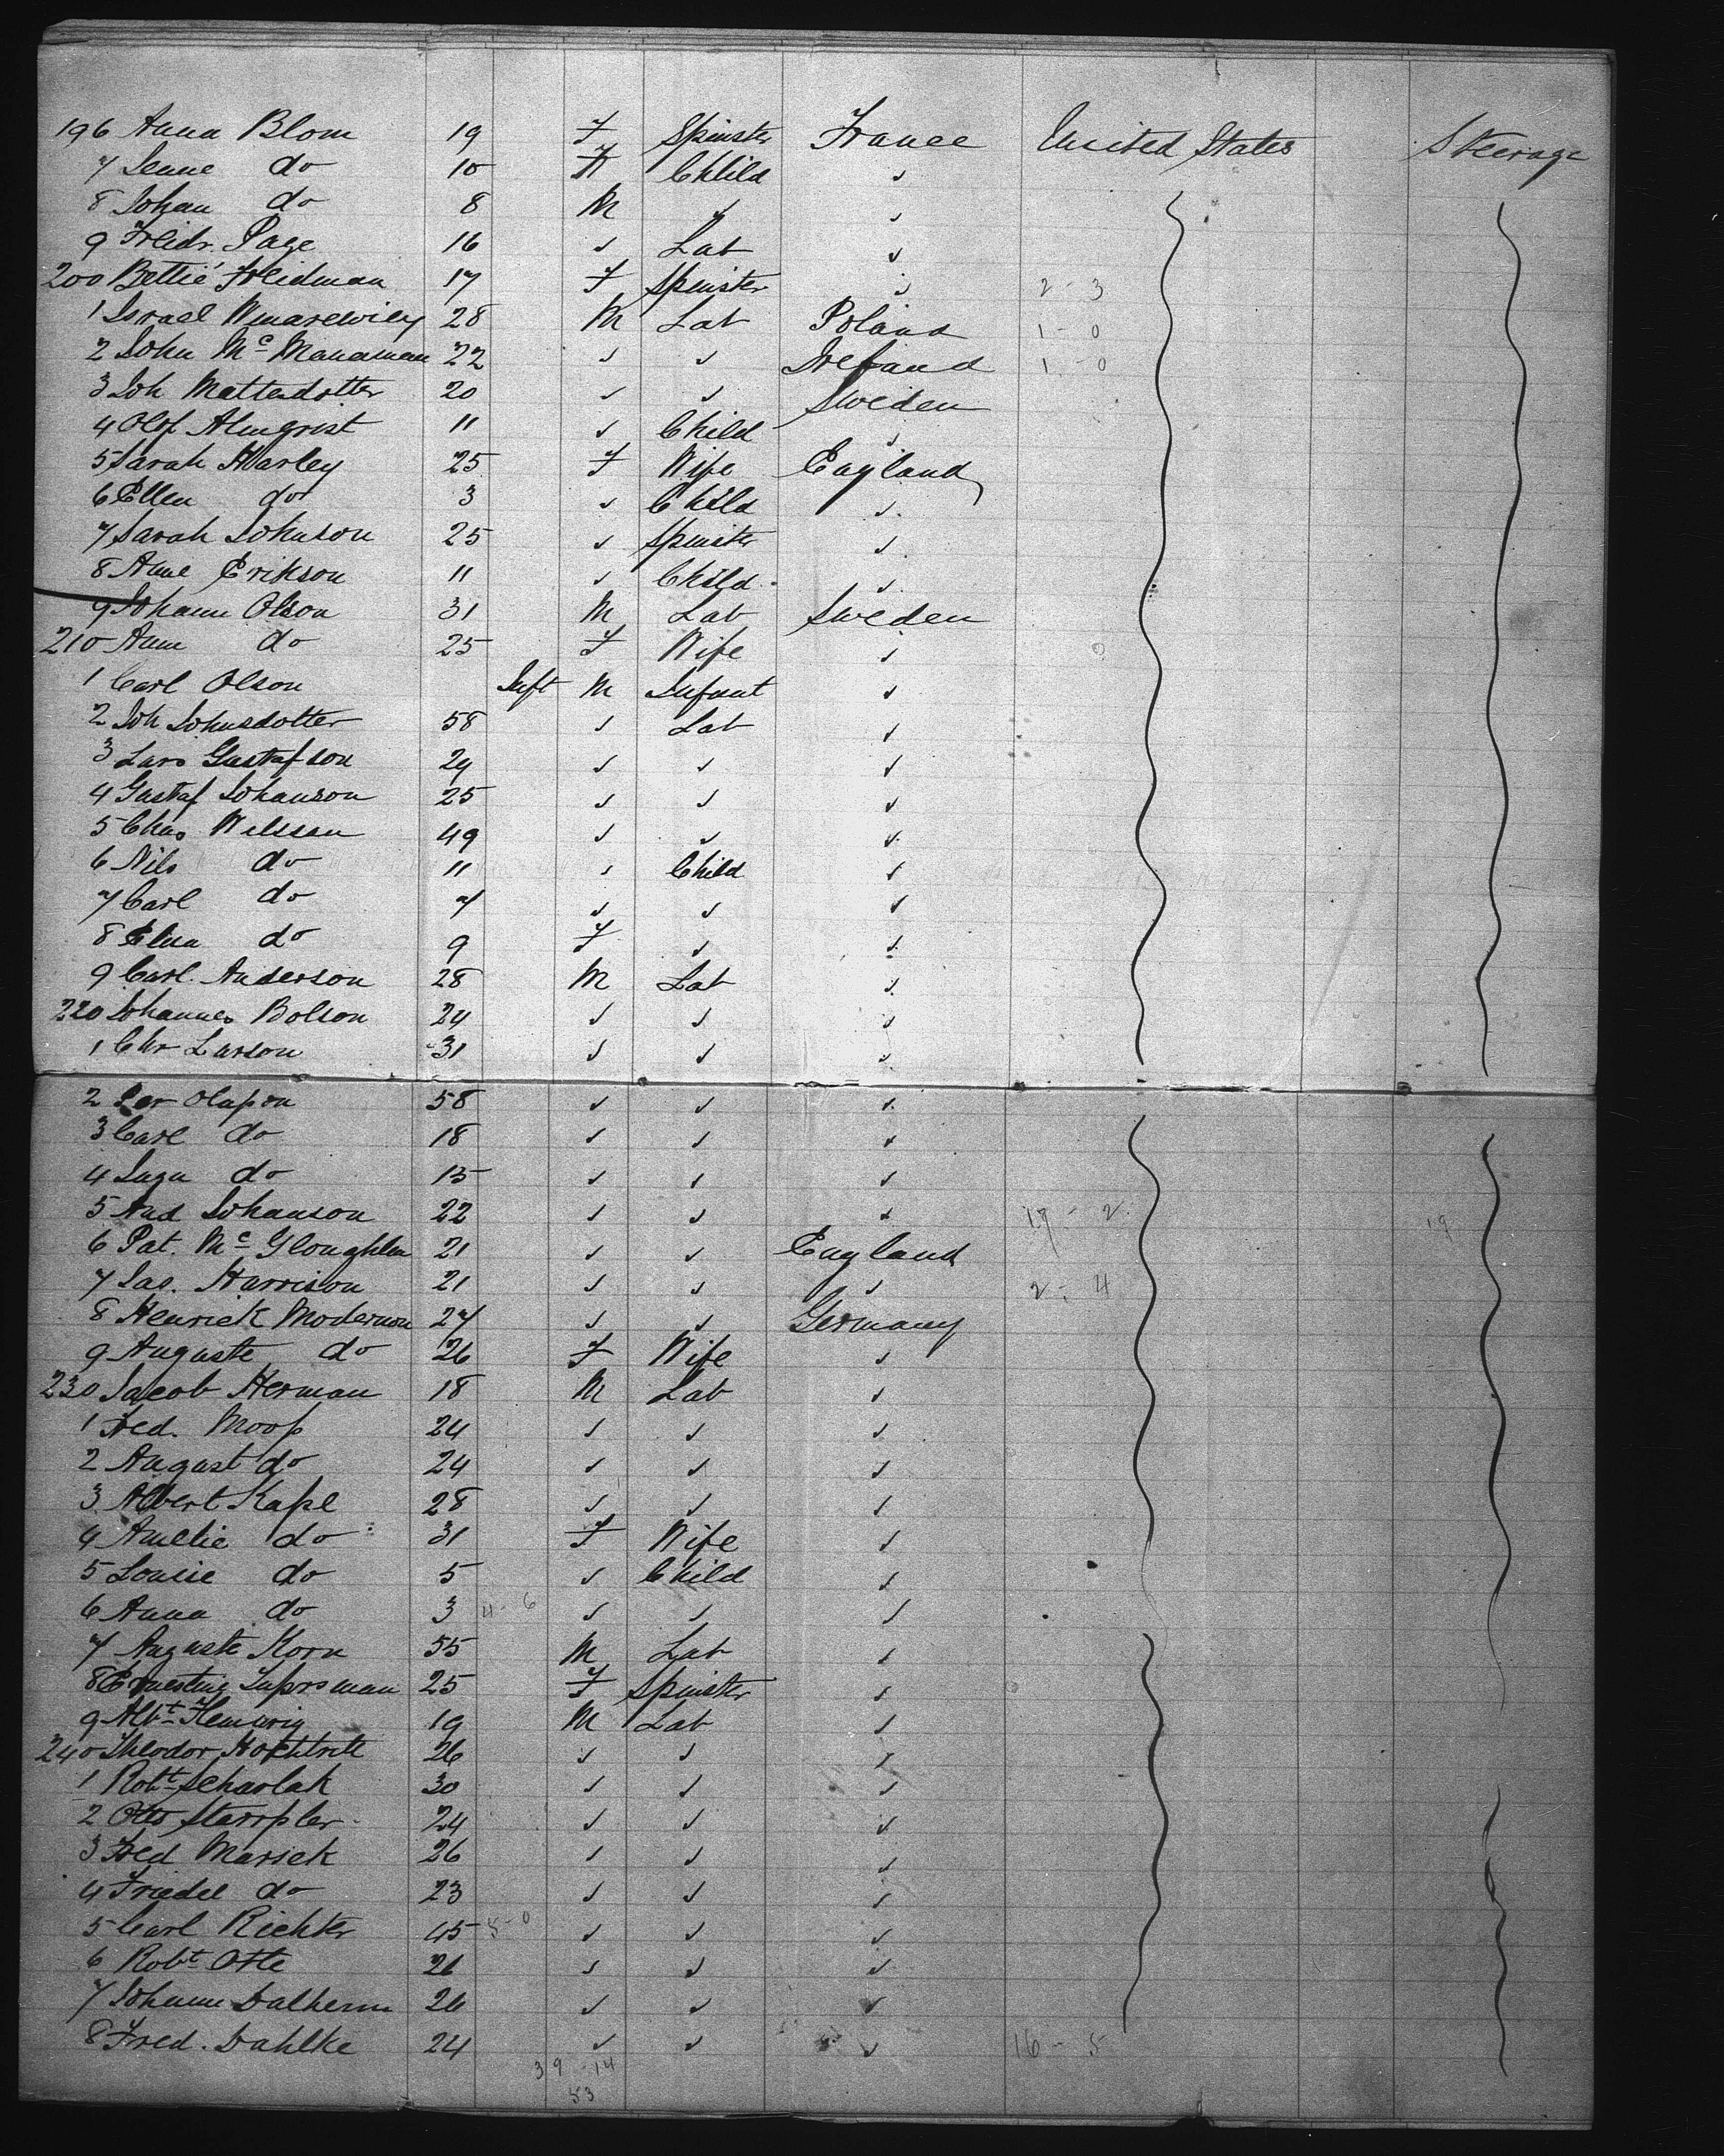 196 Anna Blom 19 F Spinster France United States Steerage
7 do 10 F Child ✓
8 Johan do 8 M ✓ ✓
9 Freidr. Page 16 ✓ Lab ✓
200 Bettie Freidman 17 F Spinster ✓ 2-3
1 Israel 28 M Lab Poland 1-0
2 John Mc Manaman 22 ✓ ✓ Ireland 1-0
3 Joh Mattesdotter 20 ✓ ✓ Sweden
4 Olof Almqrist 11 ✓ Child ✓
5 Sarah Harley 25 F Wife England
6 Ellen do 3 ✓ Child ✓
7 Sarah Johnson 25 ✓ Spinster ✓
8 Anne Erikson 11 ✓ Child ✓
9 Johann Olson 31 M Lab Sweden
210 Ann do 25 F Wife ✓ 0
1 Carl Olson Inft M Infant ✓
2 Joh Johnsdotter 58 ✓ Lab ✓
3 Lars Gustafson 29 ✓ ✓ ✓
4 Gustaf Johanson 25 ✓ ✓ ✓
5 Chas Nelsson 49 ✓ ✓ ✓
6 Nils do 11 ✓ Child ✓
7 Carl do 7 ✓ ✓ ✓
8 Elna do 9 F ✓ ✓
9 Carl. Anderson 28 M Lab ✓
220 Johannes Bolson 24 ✓ ✓ ✓
1 Chr Larson 31 ✓ ✓ ✓
2 Per Olafson 58 ✓ ✓ ✓
3 Carl do 18 ✓ ✓ ✓
4 Inga do 15 ✓ ✓ ✓
5 And Johanson 22 ✓ ✓ ✓ 19-2 19
6 Pat. Mc Gloughlin 21 ✓ ✓ England
7 Jas. Harrison 21 ✓ ✓ ✓ 2-4
8 Henrick Modernon 27 ✓ ✓ Germany
9 Auguste do 26 F Wife ✓
230 Jacob Herman 18 M Lab ✓
1 Fred. Moop 24 ✓ ✓ ✓
2 August do 24 ✓ ✓ ✓
3 Albert Kapl 28 ✓ ✓ ✓
4 Amelie do 31 F Wife ✓
5 Louise do 5 ✓ Child ✓
6 Anna do 3 4-6 ✓ ✓ ✓
7 Auguste Korn 55 M Lab ✓
8 Ernestine 25 F Spinster ✓
9 Albt 19 M Lab ✓
240 Theodor 26 ✓ ✓ ✓
1 Robt Scharlak 30 ✓ ✓ ✓
2 Otto 24 ✓ ✓ ✓
3 Fred Marick 26 ✓ ✓ ✓
4 Friedel do 23 ✓ ✓ ✓
5 Carl Richter 45 5-0 ✓ ✓ ✓
6 Robt Otte 26 ✓ ✓ ✓
7 Johann 26 ✓ ✓ ✓
8 Fred. Dahlke 24 ✓ ✓ ✓ 16-5
39-14
53